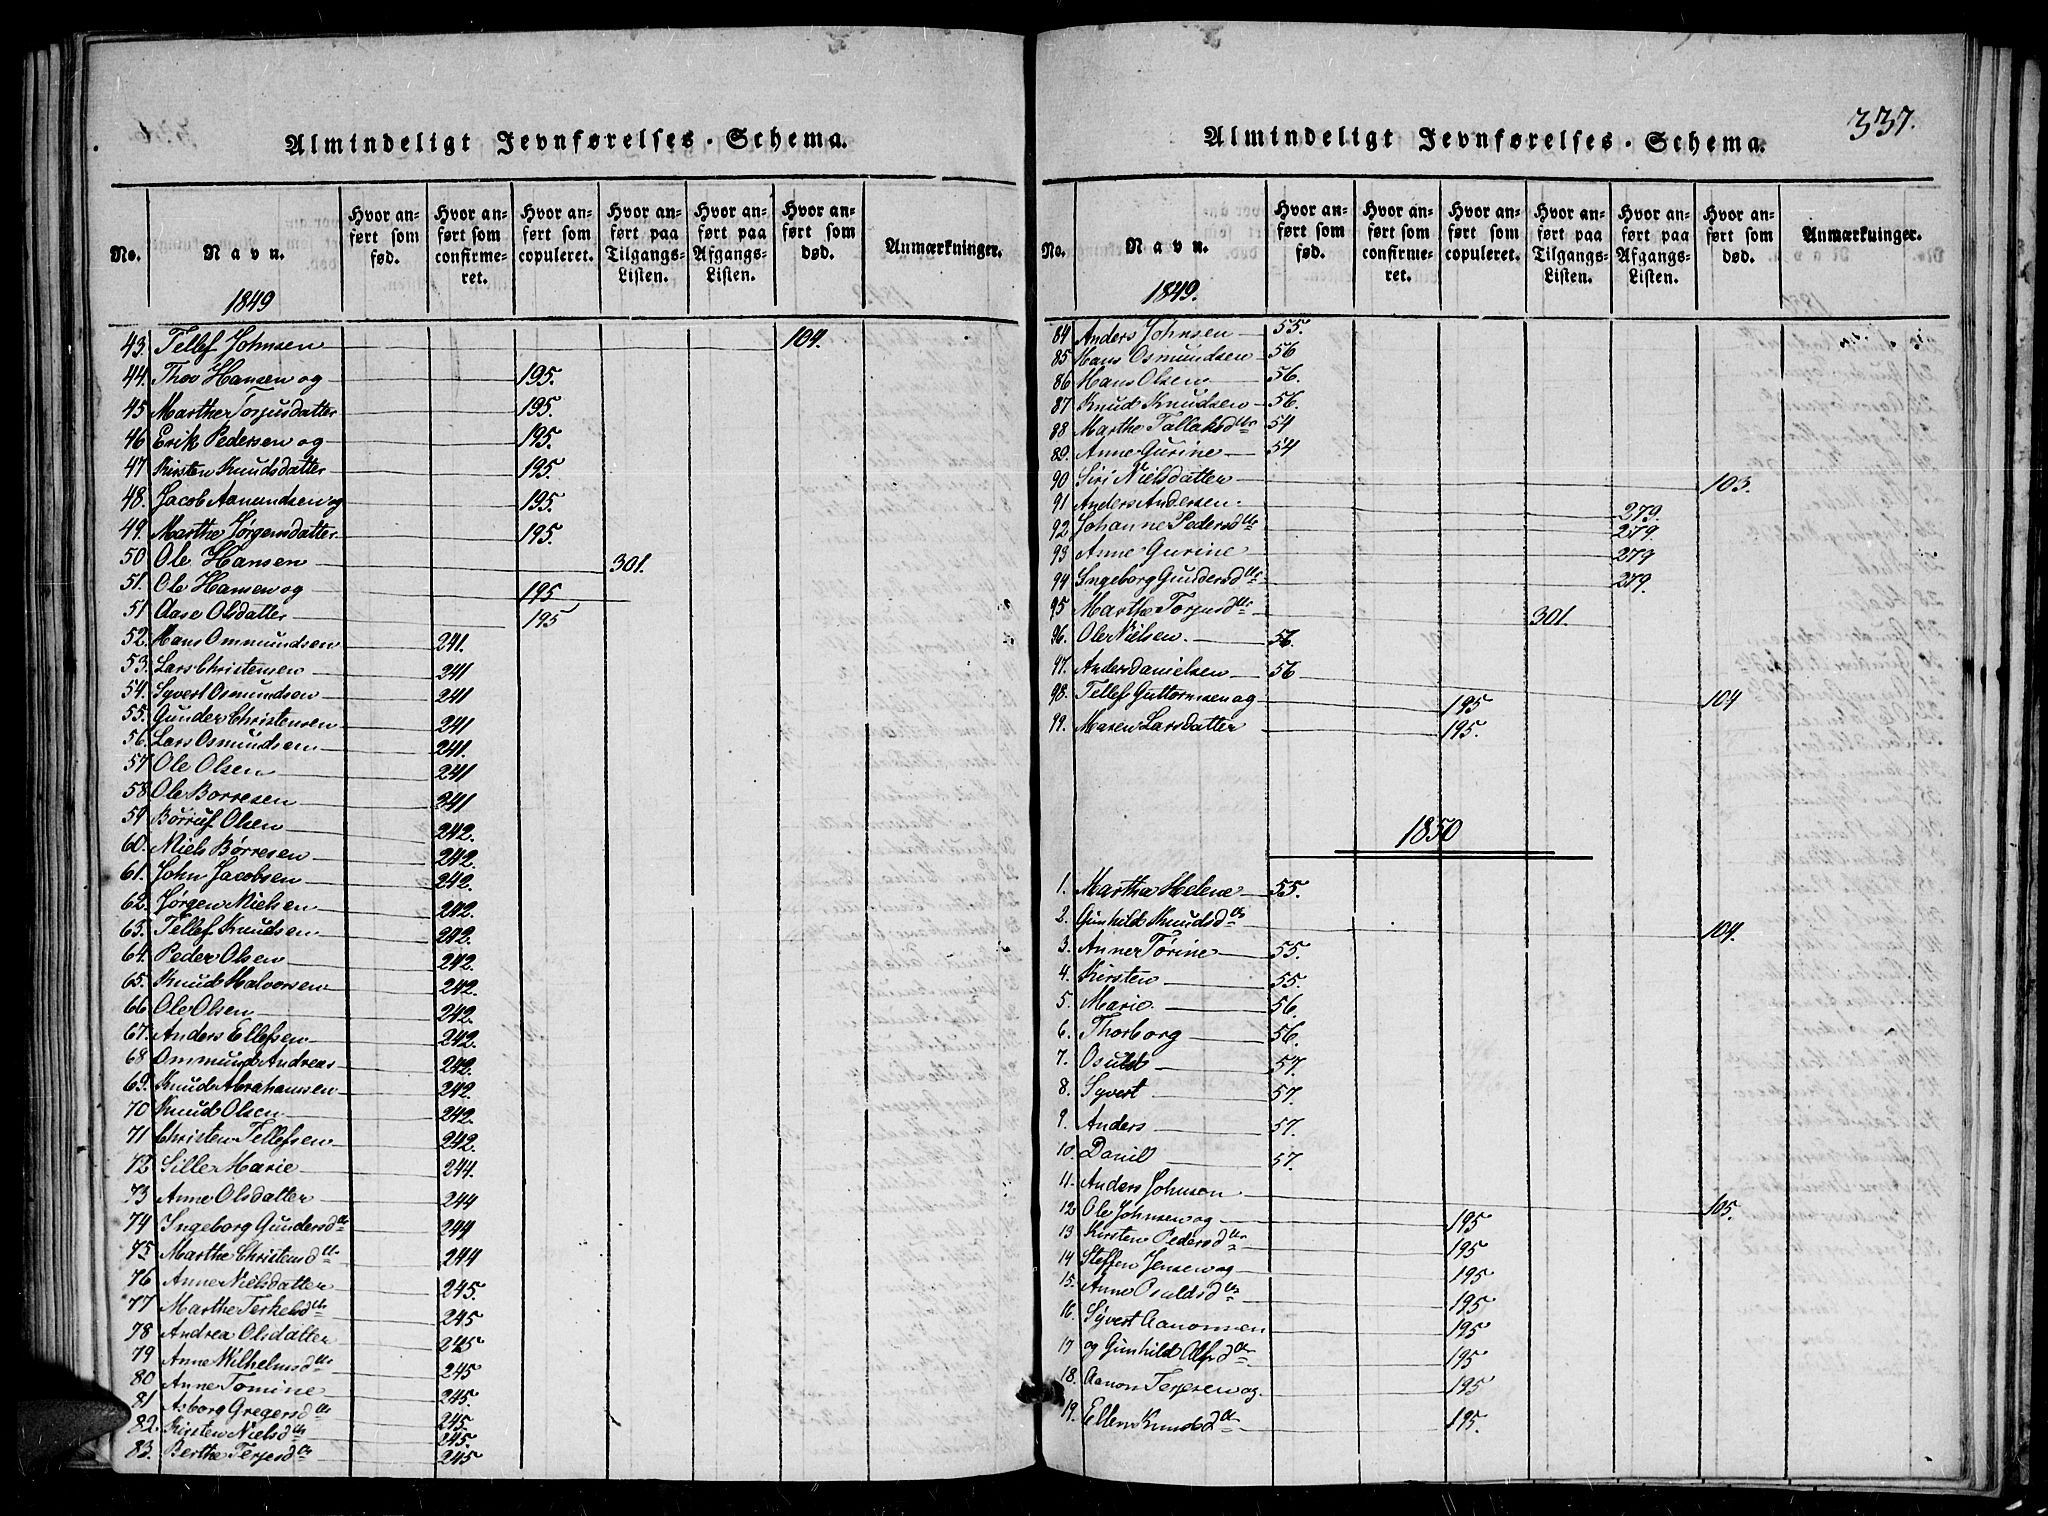 337.
Almindeligt Jevnførelses-Schema.
No. Navn. Hvor anført som fød. Hvor anført som confirmeret. Hvor anført som copuleret. Hvor anført paa Tilgangs-Listen. Hvor anført paa Afgangs-Listen. Hvor anført som død. Anmærkninger.
1849
43. Tellef Johnsen 104.
44. Thov Hansen og 195.
45 Marthe Torjusdatter 195.
46 Erik Pedersen og 195.
47 Kirsten Knudsdatter 195.
48. Jacob Aanundsen og 195.
49. Marthe Jørgensdatter 195.
50 Ole Hansen 301.
51. Ole Hansen og 195
51 Aase Olsdatter 195
52. Hans Ommundsen 241.
53. Lars Christensen 241
54. Syvert Osmundsen 241
55. Gunder Christensen 241
56. Lars Osmundsen 241.
57 Ole Olsen 241
58 Ole Børresen 241
59 Børruf Olsen 242.
60. Niels Børresen 242.
61. John Jacobsen 242.
62. Jørgen Nielsen 242.
63. Tellef Knudsen 242.
64. Peder Olsen 242.
65. Knud Halvorsen 242.
66 Ole Olsen 242.
67. Anders Ellefsen 242.
68 Ommund Andreas 242.
69. Knud Abrahamsen 242.
70 Knud Olsen 242.
71 Christen Tellefsen 242.
72 Sille Marie 244.
73 Anne Olsdatter 244
74 Ingeborg Gundersdtr 244
75 Marthe Christensdtr 244
76 Anne Nielsdatter 245.
77 Marthe Terkelsdtr 245
78 Andrea Olsdatter 245
79 Anne Wilhelmsdtr 245
80 Anne Tomine 245.
81 Asborg Gregersdtr 245
82. Kirsten Nielsdtr 245.
83. Berthe Terjesdtr 245
Almindeligt Jevnførelses-Schema.
No. Navn. Hvor anført som fød. Hvor anført som confirmeret. Hvor anført som copuleret. Hvor anført paa Tilgangs-Listen. Hvor anført paa Afgangs-Listen. Hvor anført som død. Anmærkninger.
1849.
84 Anders Johnsen 55.
85 Hans Osmundsen 56
86 Hans Olsen 56.
87 Knud Knudsen 56.
88 Marthe Tallaksdtr 54
89. Anne Gurine 54
90 Siri Nielsdatter 103.
91 Anders Andersen 279.
92 Johanne Pedersdtr 279.
93 Anne Gurine 279
94 Ingeborg Gundersdtr 279.
95 Marthe Torjusdtr 301.
96. Ole Nielsen 56.
97. Anders Danielsen 56
98. Tellef Guttormsen og 195 104
99. Maren Larsdatter 195.
1850
1. Marthe Helene 55.
2. Gunhild Knudsdtr 104.
3. Anne Torine 55.
4. Kirsten 55.
5. Marie 56.
6. Thorborg 56.
7. Osuld 57.
8. Syvert 57.
9. Anders 57.
10. Daniel 57.
11. Anders Johnsen 105.
12 Ole Johnsen og 195
13 Kirsten Pedersdtr 195
14 Steffen Jensen og 195
15. Anne Osuldsdtr 195
16. Syvert Aanonsen 195
17 og Gunhild Alfsdtr 195
18. Aanon Terjesen og 195
19. Ellen Knudsdtr 195.